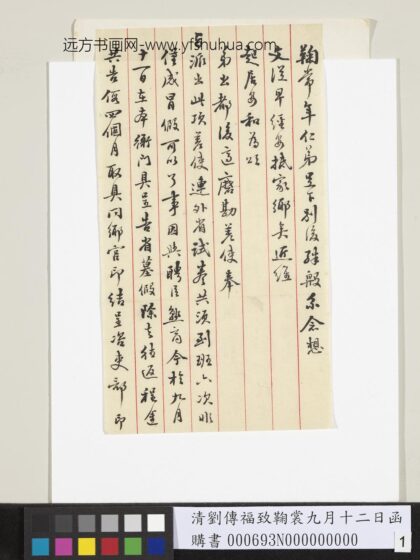 远方书画网-www.yfshuhua.com
鞠常年仁弟足下別後殊殷系念想
文從早經安抵家鄉矣近維
起居安和為頌
弟出都後適磨勘差使奉
旨派出此項差使連外省試卷共須到班六次
僅咸冒假可以了事因與聘臣熟商今於九月
十一日在本衙門具呈告省墓假除去往返程途
共告假四個月取具同鄉官印結呈咨吏部印
清劉傳福致鞠裳九月十二日函
購書 000693N000000000
1